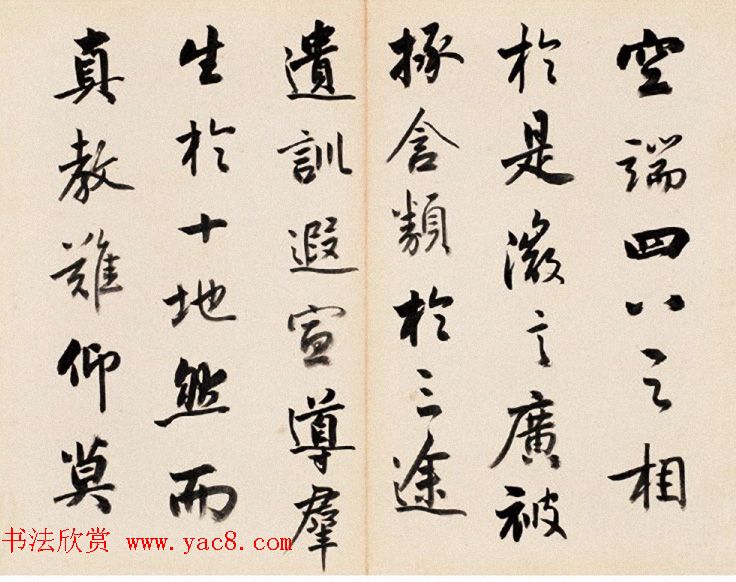 空端四八之相
於是微言廣被
拯含類於三途
遺訓遐宣導羣
生於十地然而
真教難仰莫
书法欣赏 www.yac8.com